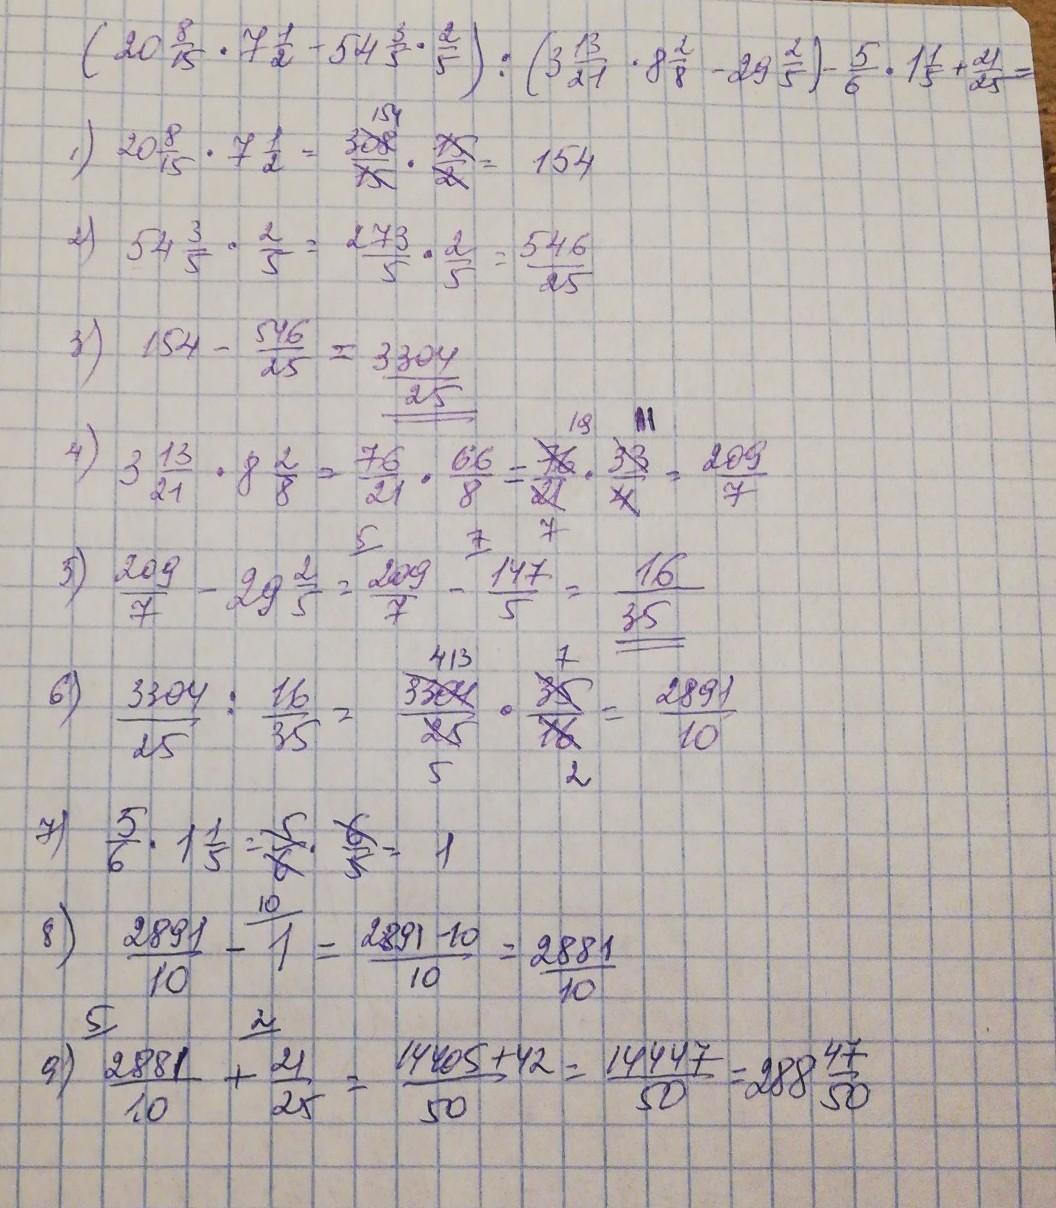 (20 8/15 · 7 1/2 - 54 3/5 · 2/5) : (3 13/21 · 8 2/8 - 29 2/5) - 5/6 · 1 1/5 + 21/25 =
1) 20 8/15 · 7 1/2 = 308/15 · 15/2 = 154
154
2) 54 3/5 · 2/5 = 273/5 · 2/5 = 546/25
3) 154 - 546/25 = 3304/25
4) 3 13/21 · 8 2/8 = 76/21 · 66/8 = 76/21 · 33/4 = 209/7
19 11
7
5 7
5) 209/7 - 29 2/5 = 209/7 - 147/5 = 16/35
413 7
6) 3304/25 : 16/35 = 3304/25 · 35/16 = 2891/10
5 2
7) 5/6 · 1 1/5 = 5/6 · 6/5 = 1
10
8) 2891/10 - 1 = 2891-10/10 = 2881/10
5 2
9) 2881/10 + 21/25 = 14405+42/50 = 14447/50 = 288 47/50